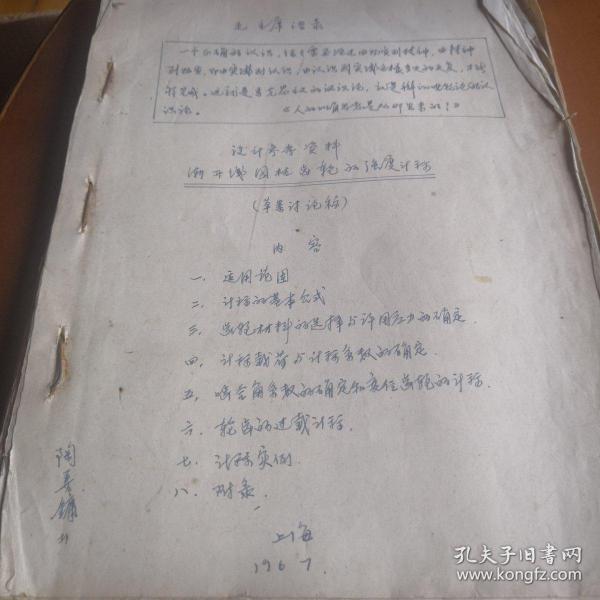 毛主席语录
一个正确的认识，往往需要经过由物质到精神，由精神
到物质，即由实践到认识，由认识到实践这样多次的反复，才能
够完成。这就是马克思主义的认识论，就是辩证唯物论的认
识论。 《人的正确思想是从那里来的？》
设计参考资料
渐开线圆柱齿轮的强度计称
（草案讨论稿）
内容
一．运用范围
二．计称的基本公式
三．齿轮材料的选择与许用应力的确定．
四．计称载荷与计称系数的确定．
五．啮合角系数的确定和变位齿轮的计称．
六．轮齿的过载计称．
七．计称实例．
八．附录．
上海
1967．
陶
镛
孔夫子旧书网
www.kongfz.com